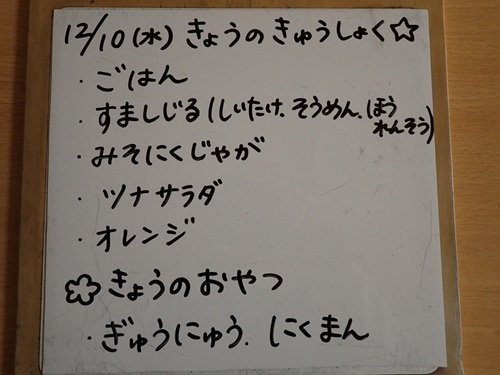 12/10(水) きょうのきゅうしょく☆
・ごはん
・すましじる(しいたけ、そうめん、ほうれんそう)
・みそにくじゃが
・ツナサラダ
・オレンジ
きょうのおやつ
・ぎゅうにゅう、にくまん